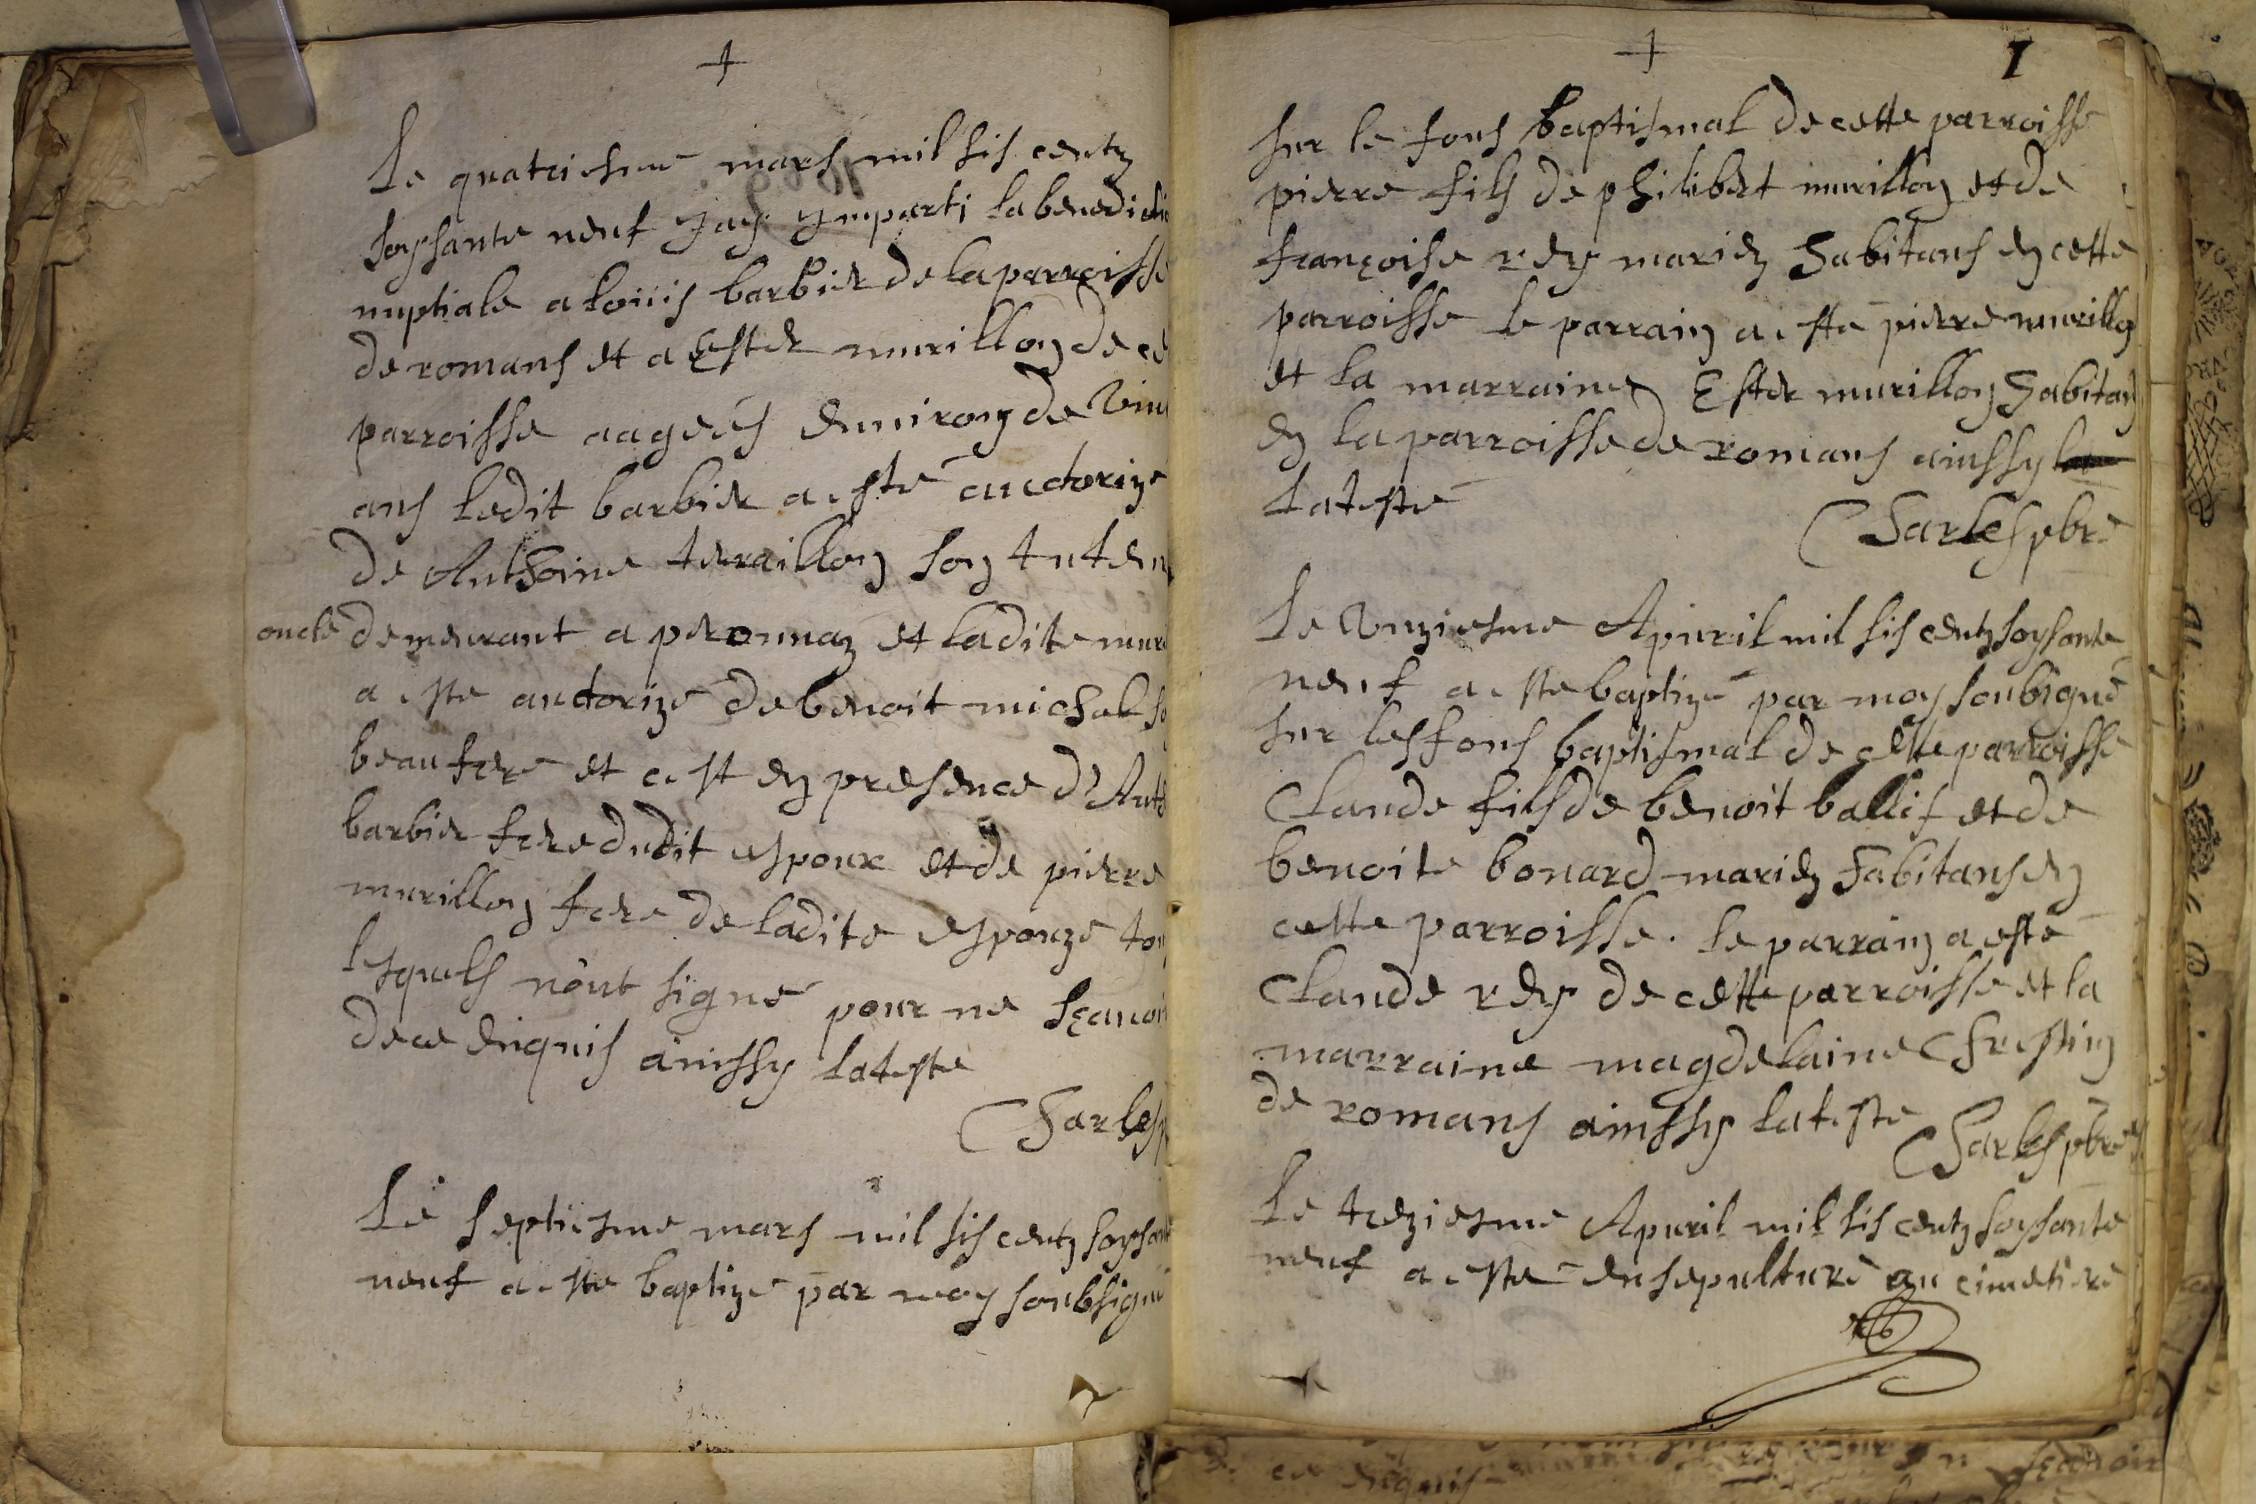 +
Le quatriesme mars mil sis centz
soysante neuf Jay ymparti la benedicti
nuptiale a loüis barbier de la parroisse
de romans et a Ester murillon de ce
parroisse aageés enuiron de Vin
ans ledit barbier a esté auctorize
de Anthoine teraillon son tuteur
oncle demeurant a peronnaz et ladite mur
a este auctorize de benoit michel so
beaufrere et cest en presence d'Anth
barbier frere dudit espoux et de pierre
murillon frere de ladite espouze tou
lesquels nont signé pour ne sçauoi
de ce enquis ainssy lateste
Charles p
Le septiesme mars mil sis centz soysant
neuf a este baptize par moy soubsigne
+
1
sur le fons baptismal de cette parroisse
pierre fils de philibert murillon et de
françoise rey mariez habitans en cette
parroisse le parrain a esté pierre murillon
et la marraine Ester murillon habitan
en la parroisse de romans ainssy
lateste
Charles pbre
Le Vnziesme Apuril mil sis centz soysante
neuf a este baptizé par moy soubsigné
sur les fons baptismal de cette parroisse
Claude fils de benoit ballif et de
benoite bonard mariez habitans en
cette parroisse. le parrain a esté
Claude rey de cette parroisse et la
marraine magdelaine Chrestin
de romans ainssy lateste
Charles pbre
Le treziesme Apuril mil sis centz soysante
neuf a esté ensepulturé au cimetiere